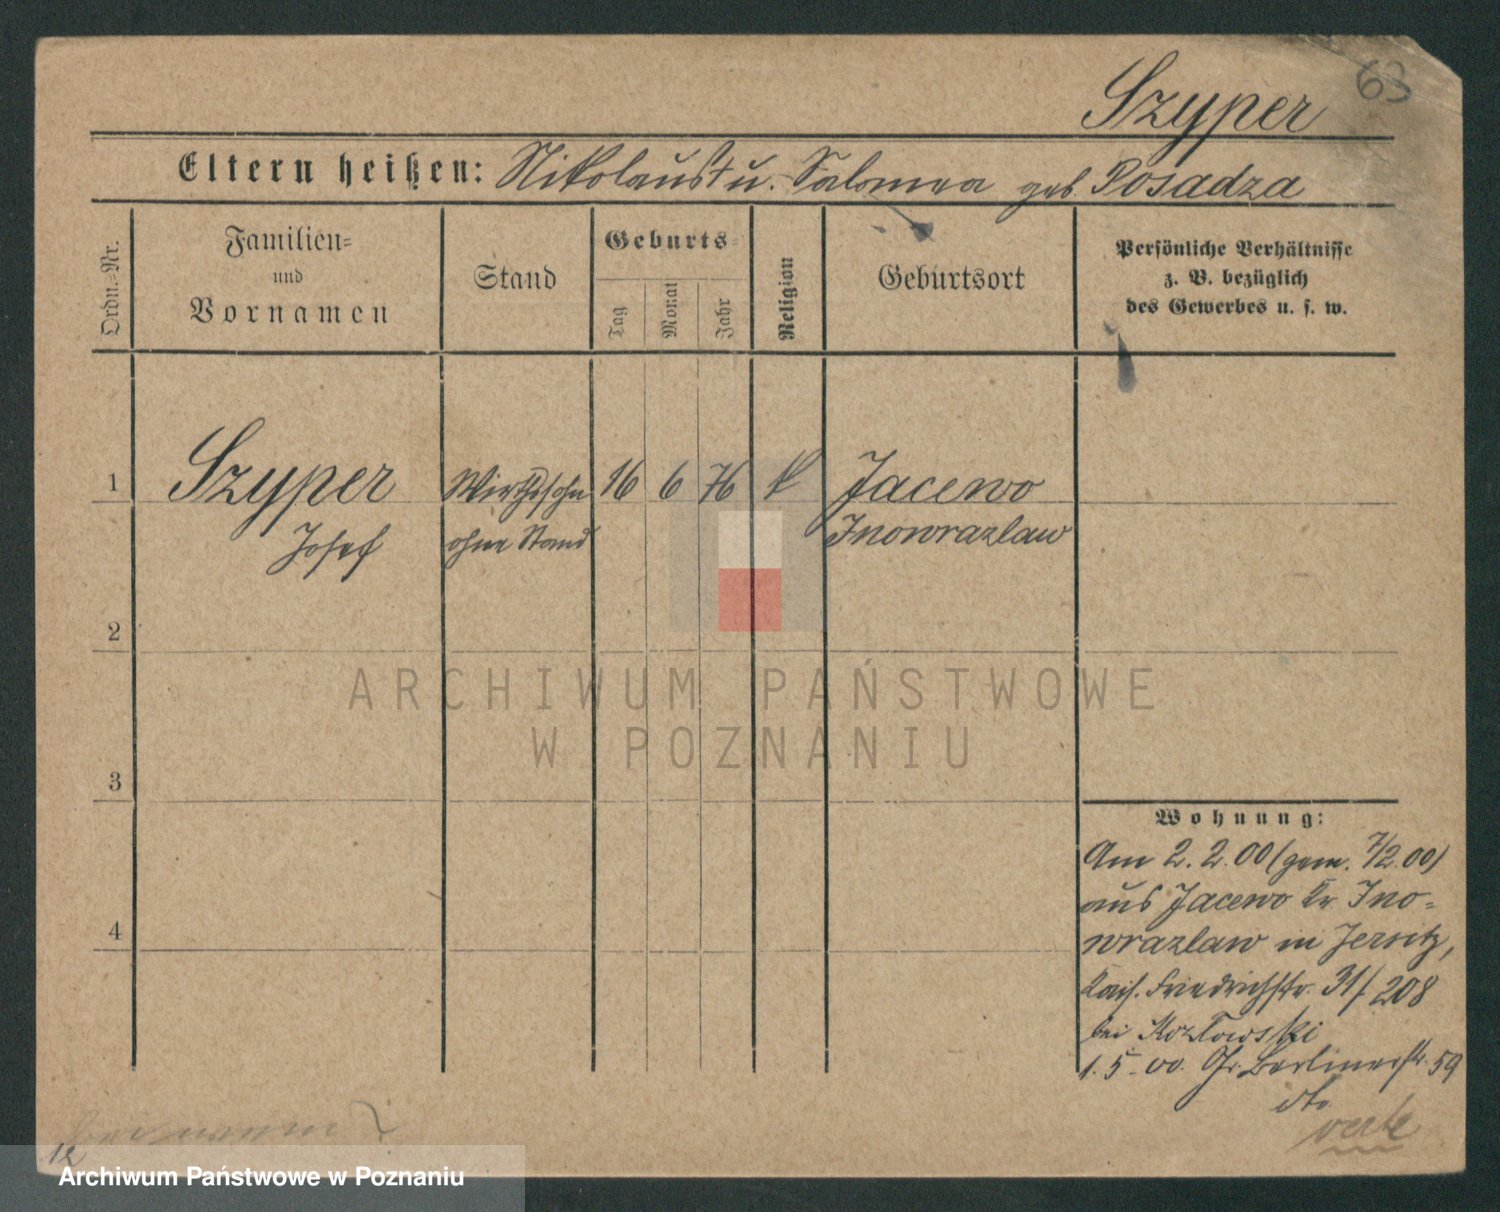 63
Szyper
Eltern heißen: Nikolaus † u. Salomea geb. Posadza
Ordn.-Nr.
Familien-
und
Vornamen
Stand
Geburts-
Tag
Monat
Jahr
Religion
Geburtsort
Persönliche Verhältnisse
z. B. bezüglich
des Gewerbes u. s. w.
1 Szyper Wirthssohn 16 6 76 k Jacewo
Josef ohne Stand Inowrazlaw
2
ARCHIWUM PAŃSTWOWE
W POZNANIU
3
4
Wohnung:
Am 2. 2. 00 (gem. 7/2.00)
aus Jacewo Kr. Ino-
wrazlaw in Jersitz,
Kais. Friedrichstr. 31/208
bei Kozłowski
1. 5. 00. Gr. Berlinerstr. 59
dto
verte
12
Archiwum Państwowe w Poznaniu